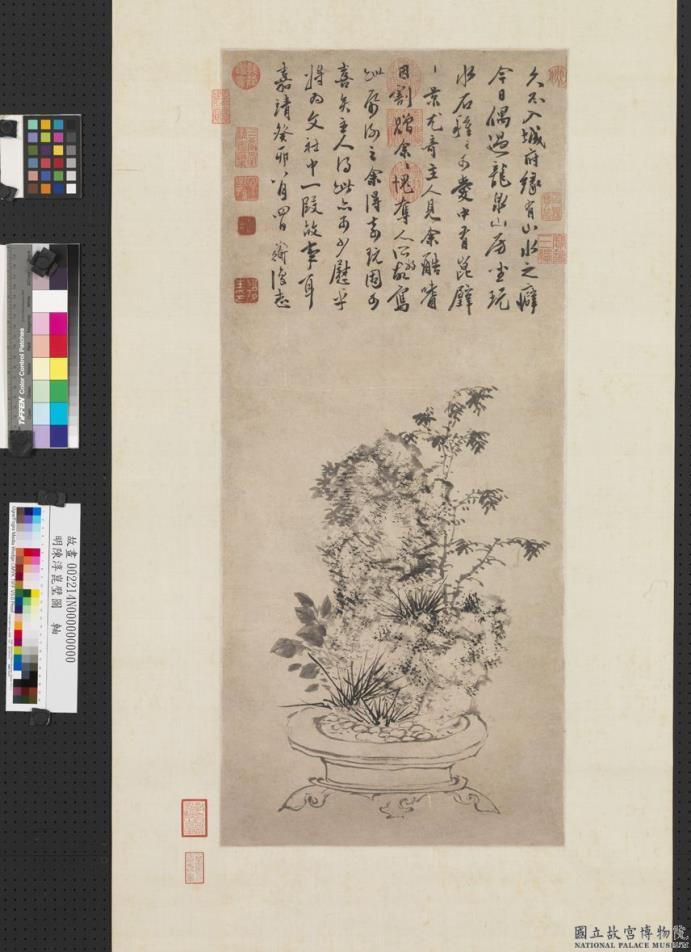 久不入城府緣有山水之癖
今日偶過龍泉山房坐玩
水石種種可愛中有崑壁
一景尤奇主人見余酷嗜
因割贈余〻愧奪人 寫
此 之余得 玩固可
喜矣主人得此亦可少慰乎
將為文社中一段故事耳
嘉靖癸卯八月四日 道復志
TIFFEN Color Control Patches
故畫 002214N000000000
明陳淳崑壁圖 軸
國立故宮博物院
NATIONAL PALACE MUSEUM